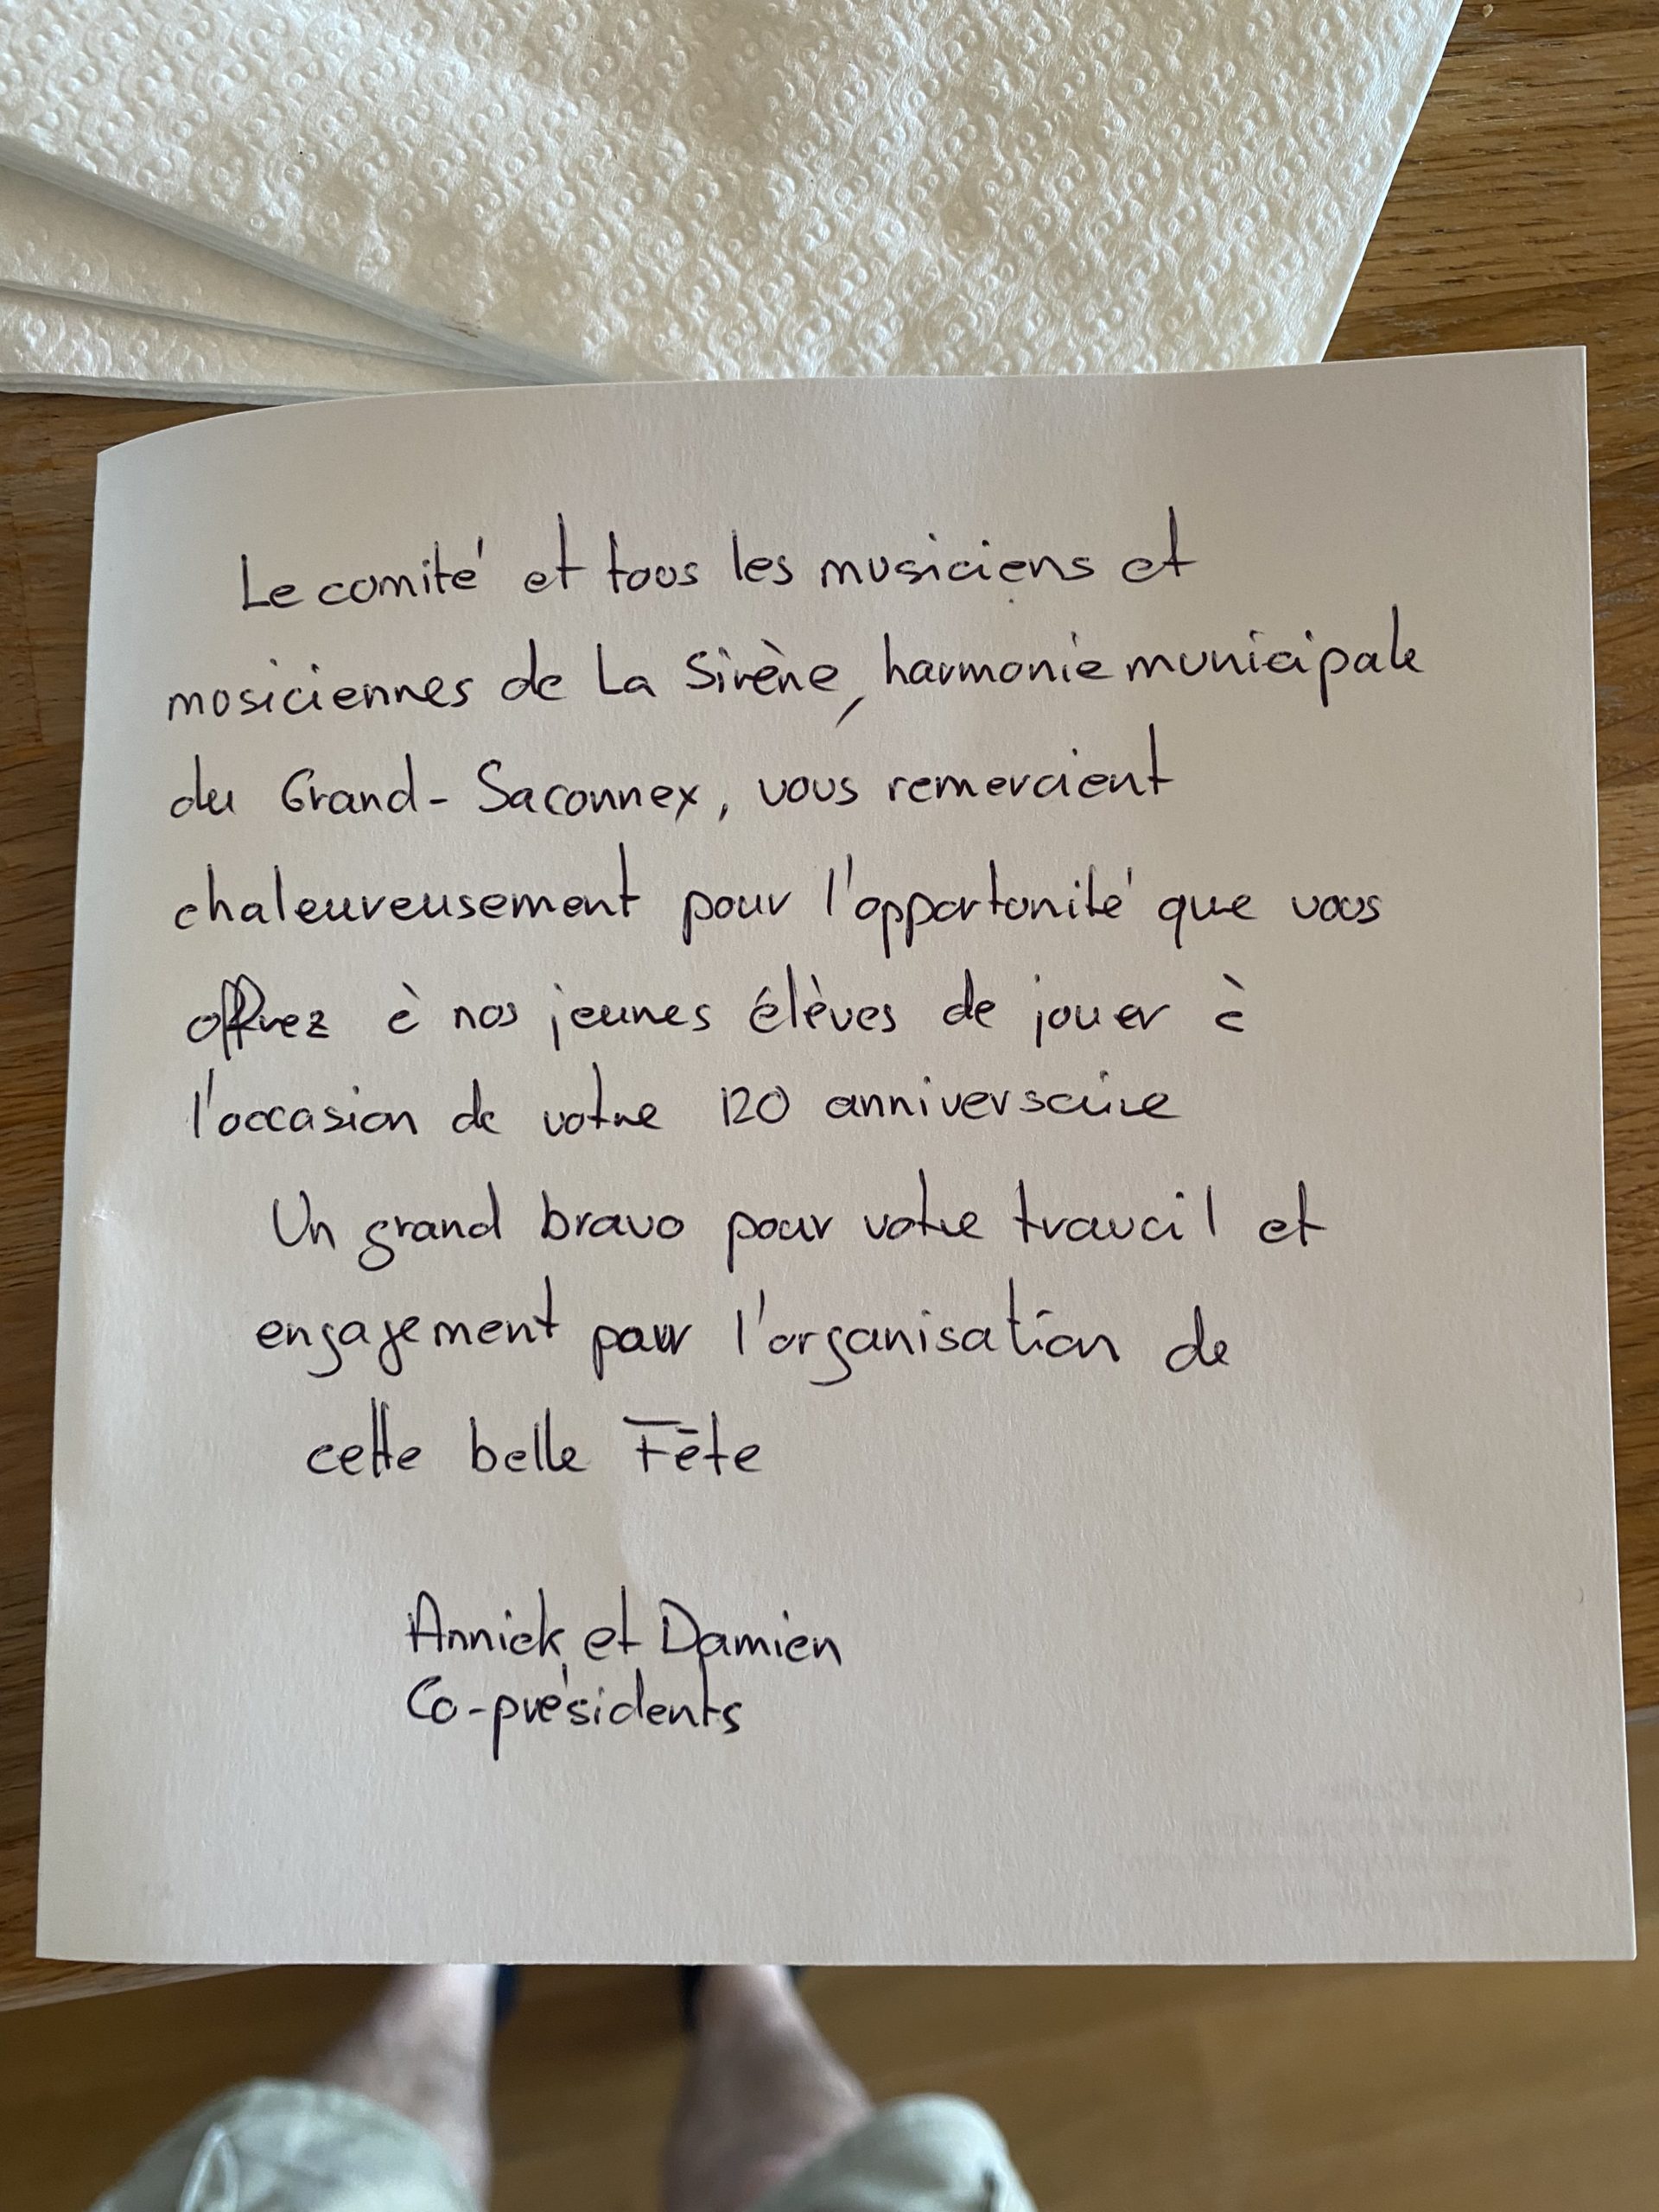 Le comité et tous les musiciens et
musiciennes de La Sirène, harmonie municipale
du Grand-Saconnex, vous remercient
chaleureusement pour l'opportunité que vous
offrez à nos jeunes élèves de jouer à
l'occasion de votre 120 anniversaire
Un grand bravo pour votre travail et
engagement pour l'organisation de
cette belle Fête
Annick et Damien
Co-présidents